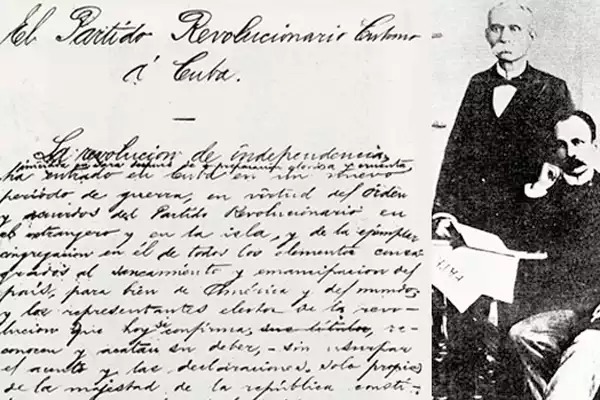 El Partido Revolucionario Cubano
á Cuba.
—
La revolucion de independencia,
iniciada en Yara despues de preparacion gloriosa y cruenta
ha entrado en Cuba en un nuevo
periodo de guerra, en virtud del órden
y acuerdos del Partido Revolucionario en
el extranjero y en la isla, y de la ejemplar
congregacion en él de todos los elementos consa-
grados al saneamiento y emancipacion del
país, para bien de América y del mundo;
y los representantes electos de la revo-
lucion que hoy se confirma, sus títulos, re-
conocen y acatan su deber, - sin usurpar
el acento y las declaraciones, solo propias
de la majestad de la república consti-